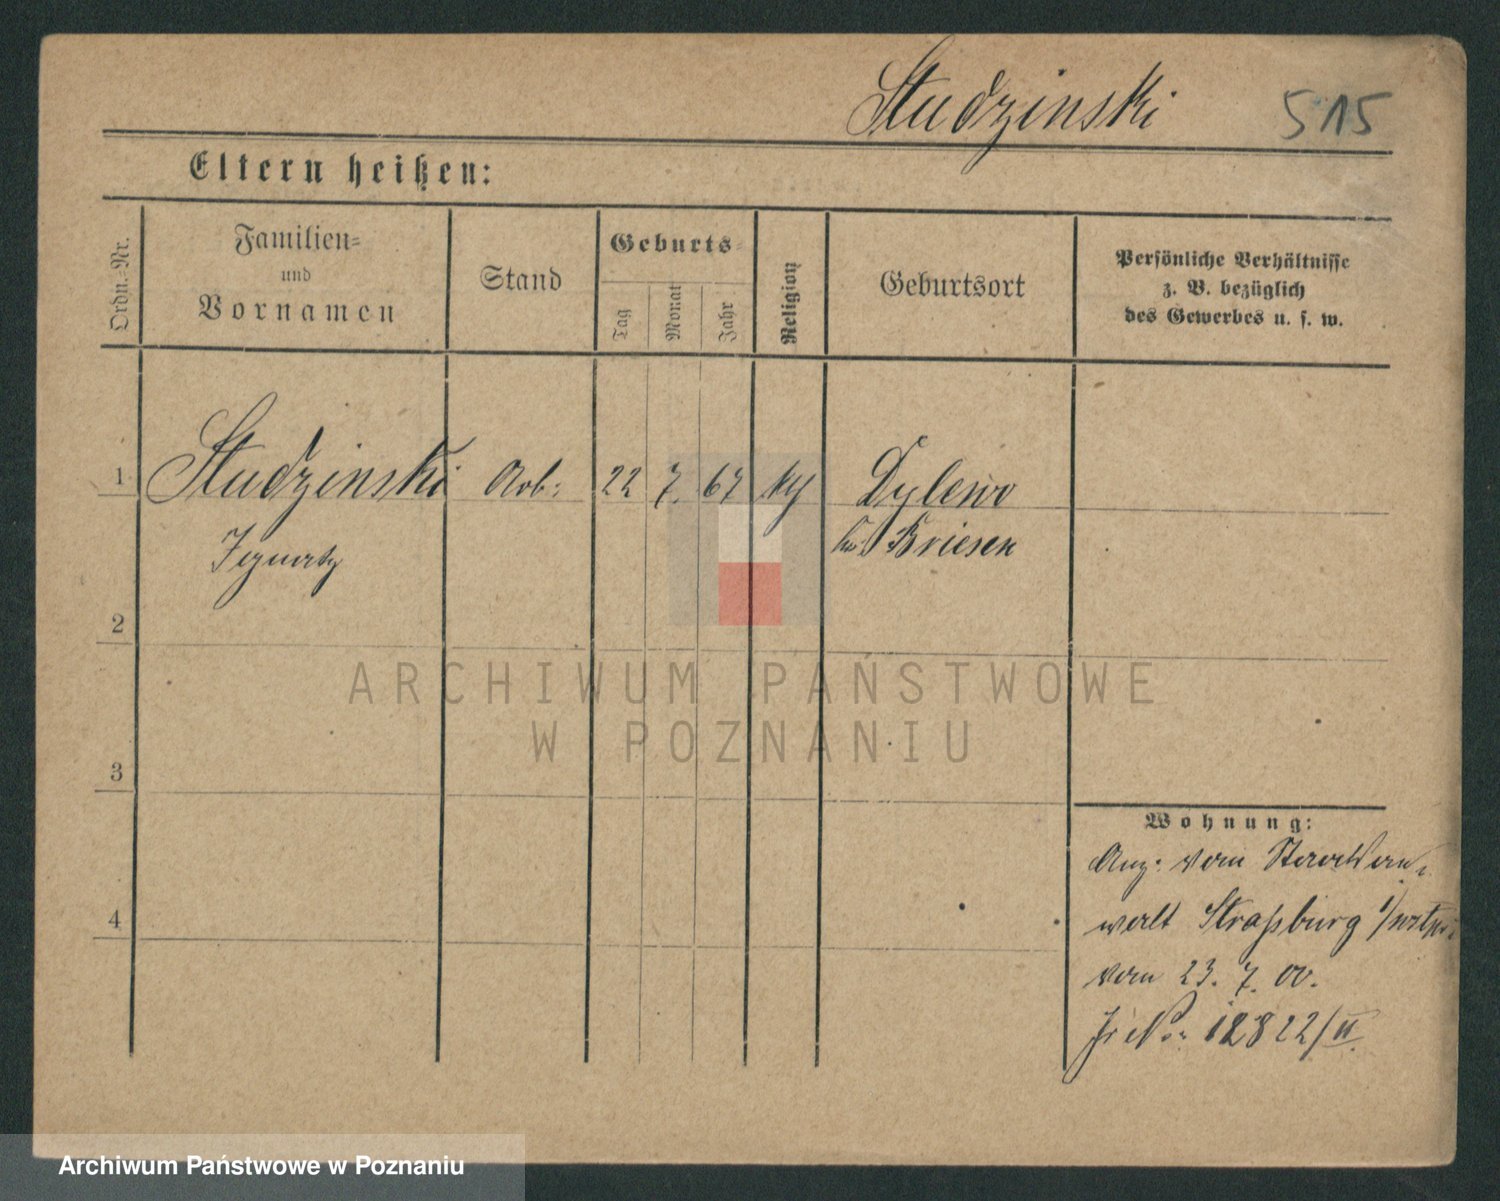 Studzinski 515
Eltern heißen:
Ordn.-Nr.
Familien-
und
Vornamen
Stand
Geburts-
Tag
Monat
Jahr
Religion
Geburtsort
Persönliche Verhältnisse
z. B. bezüglich
des Gewerbes u. s. w.
1 Studzinski Arb: 22 7. 67 Dylewo
Ignatz Kr. Briesen
2
3
4
Wohnung:
Anz. vom Staatsan-
walt Straßburg
vom 23. 7. 00.
12822/II
ARCHIWUM PAŃSTWOWE
W POZNANIU
Archiwum Państwowe w Poznaniu